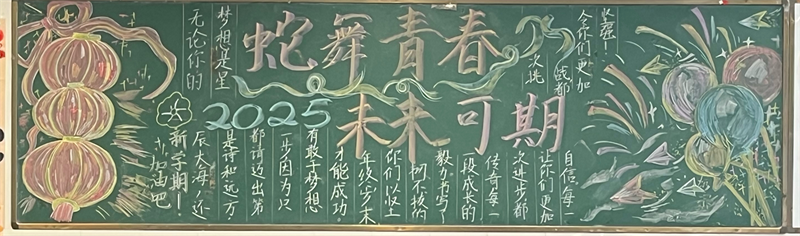 蛇舞青春
2025 未来可期
无论你的
梦想是星
辰大海,还
是诗和远方
都请迈出第
一步因为只
有敢于梦想
才能成功.
年级步
你们以
韧不拔的
毅力书写了
一段成长的
传奇每一
次进步都
让你们更加
自信每一
次挑
战都
令你们更加
坚强!
新学期!
加油吧